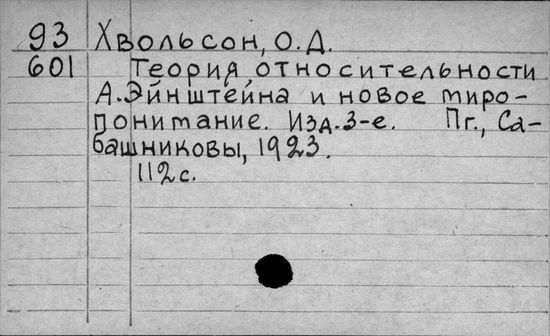 93 Хвольсон, О.Д.
601 Теория относительности
А.Эйнштейна и новое миро-
понимание. Изд.3-е. Пг., Са-
башниковы, 1923.
112с.